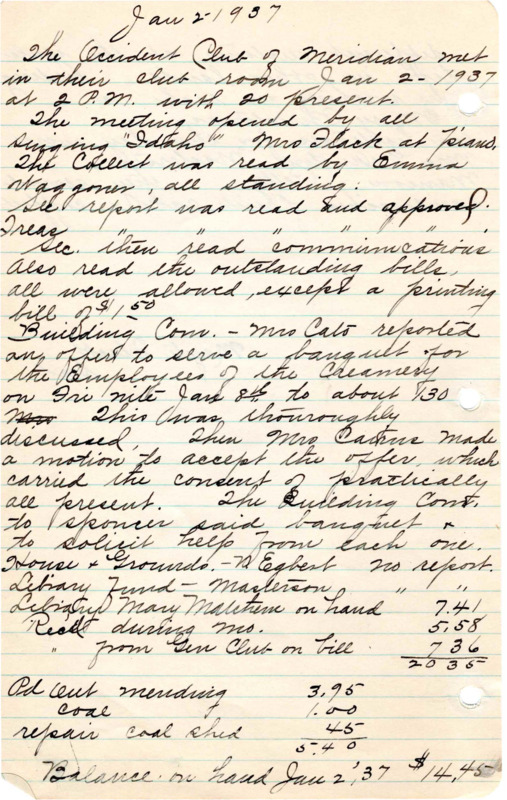 Jan 2 - 1937
The Occident Club of Meridian met
in their club room Jan 2 - 1937
at 2 P.M. with 20 present.
The meeting opened by all
singing "Idaho" Mrs Flack at piano.
The Collect was read by Emma
Waggoner, all standing.
Sec. report was read and approved.
Treas " " " " "
Sec. then read "communications"
Also read the outstanding bills,
all were allowed, except a printing
bill of $1.50
Building Com. - Mrs Cato reported
an offer to serve a banquet for
the Employees of the Creamery
on Fri nite Jan 8th to about 130
Mrs This was thouroughly
discussed, Then Mrs Cairns made
a motion to accept the offer, which
carried the consent of practically
all present. The Building Com.
to sponcer said banquet &
to solicit help from each one.
House & Grounds. - Egbert no report.
Library Fund - Masterson " "
Library Mary on hand 7.41
Recd during mo. 5.58
" from Gen Club on bill. 7 36
20 35
Pd out mending 3.95
coal 1.00
repair coal shed 45
5.40
Balance on hand Jan 2', 37 $14.45